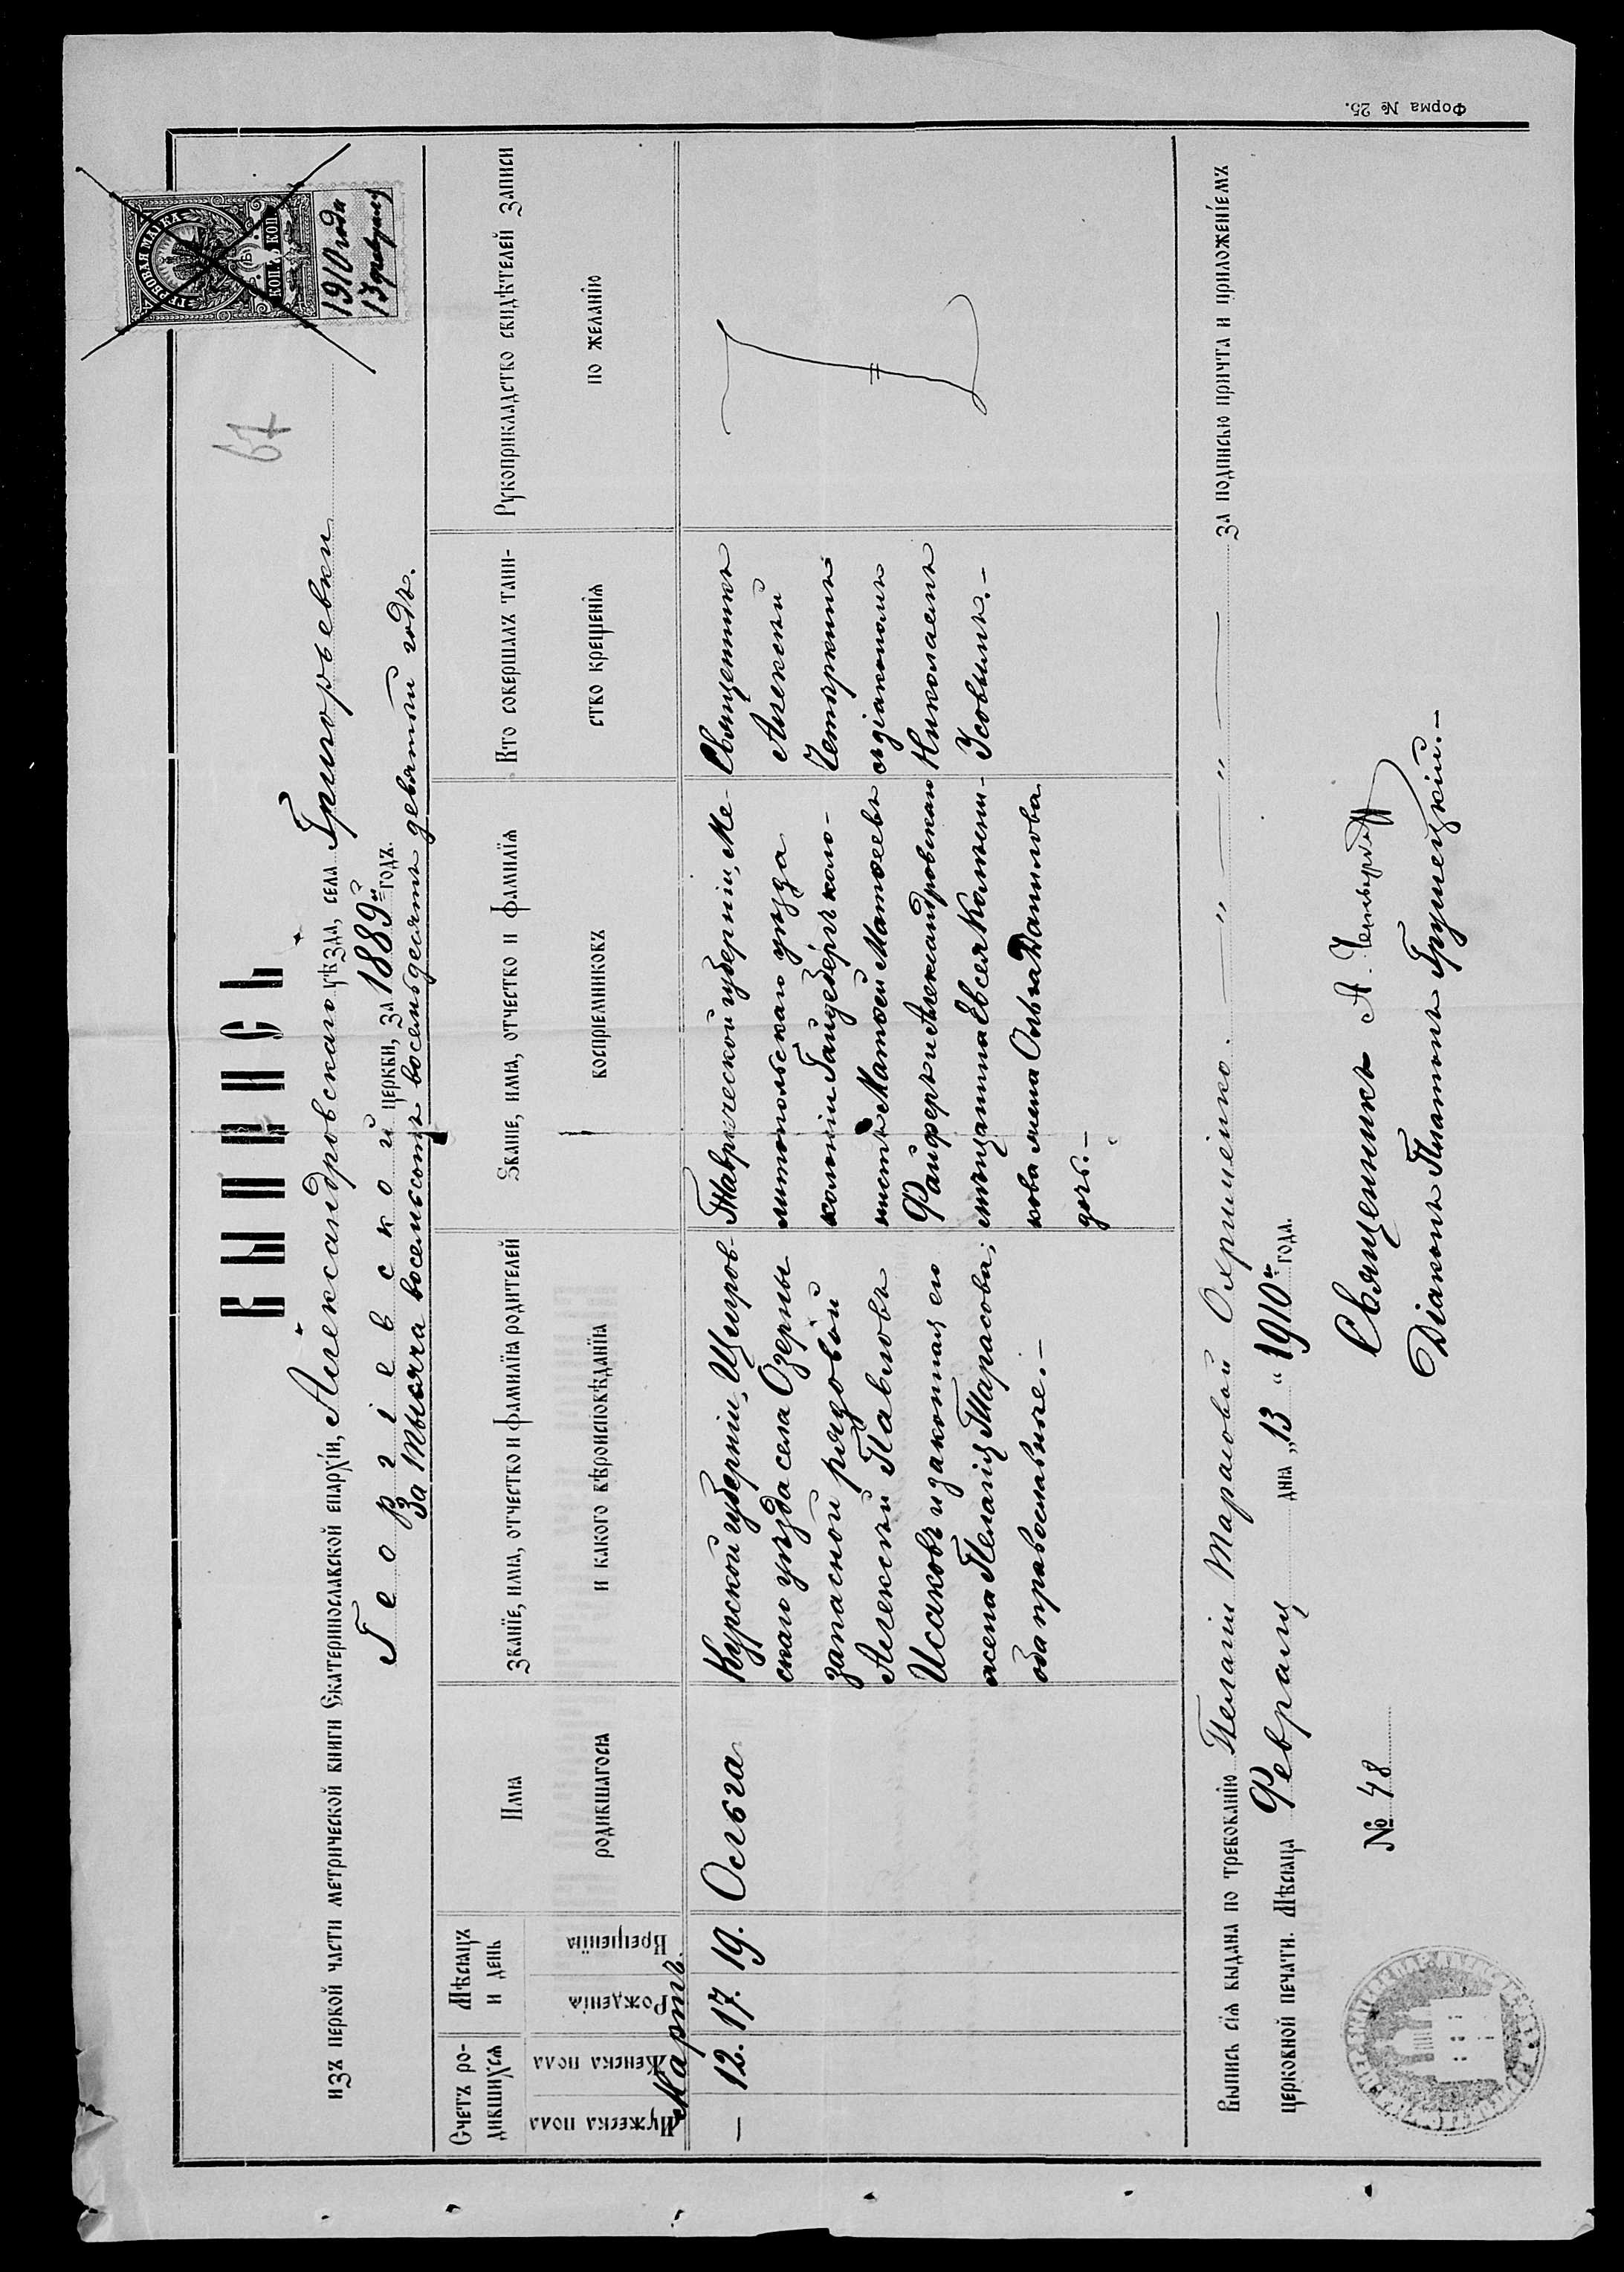 Форма № 25.
ГЕРБОВАЯ МАРКА
КОП. 75 КОП.
1910 года
13 февраля
67
ВЫПИСЬ
изъ первой части метрической книги Екатеринославской епархіи, Александровскаго уѣзда, села Григорьевки
Георгіевской церкви, за 1889й годъ.
За тысяча восемьсотъ восемьдесятъ девятый годъ.
Счетъ родившихся
Мужеска пола
Женска пола
Мѣсяцъ и день
Рожденія
Крещенія
Имя
родившагося
Званіе, имя, отчество и фамилія родителей
и какого вѣроисповѣданія
Званіе, имя, отчество и фамилія
воспріемниковъ
Кто совершалъ таин-
ство крещенія
Рукоприкладство свидѣтелей записи
по желанію
Мартъ.
—
12.
17.
19.
Ольга
Курской губерніи, Щигров-
скаго уѣзда села Озерны
запасной рядовой
Алексѣй Павловъ
Исаковъ и законная его
жена Пелагія Тарасова;
оба православные.—
Таврической губерніи, Ме-
литопольскаго уѣзда
колоніи Гайдебергъ коло-
нистъ Матѳей Матѳеевъ
Файферъ и Александровская
мѣщанина Евсея Калини-
кова жена Ольга Данилова
дочь.—
Священникъ
Алексѣй
Четыркинъ
съ діакономъ
Николаемъ
Усовымъ.—
Выпись сія выдана по требованію Пелагіи Тарасовой Охрименко. — " — " — за подписью причта и приложеніемъ
церковной печати. Мѣсяца Февраля дня „13" 1910й года.
№ 48
Священникъ А. Четыркинъ
Діаконъ Платонъ Грушецкій.—